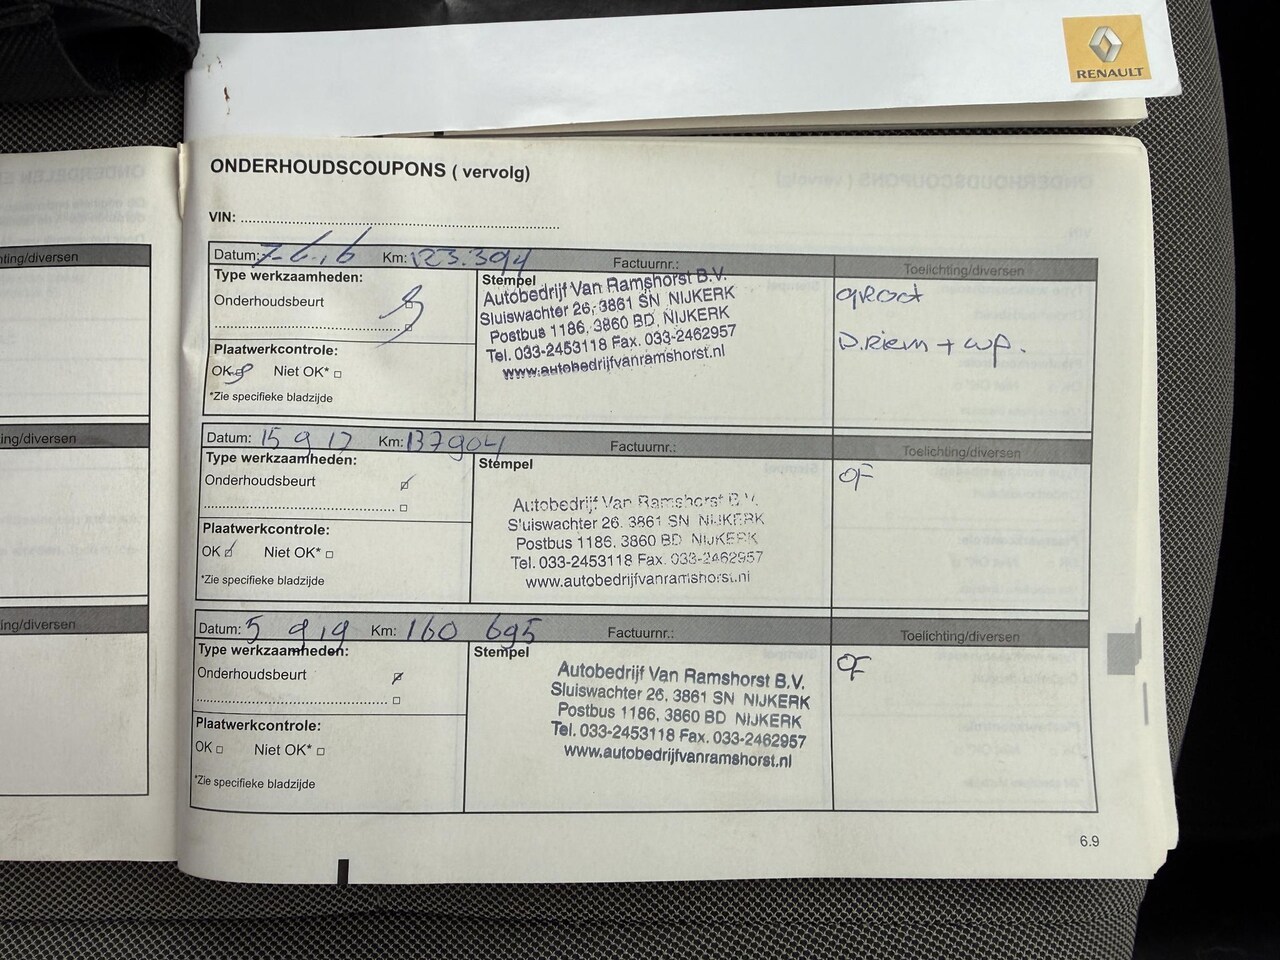 RENAULT
ONDERHOUDSCOUPONS ( vervolg)
VIN:
hting/diversen
Datum: 7-6,16 Km: 123.394 Factuurnr.: Toelichting/diversen
Type werkzaamheden:
Onderhoudsbeurt
Plaatwerkcontrole:
OK Niet OK*
*Zie specifieke bladzijde
Stempel
Autobedrijf Van Ramshorst B.V.
Sluiswachter 26, 3861 SN NIJKERK
Postbus 1186, 3860 BD, NIJKERK
Tel. 033-2453118 Fax. 033-2462957
www.autobedrijfvanramshorst.nl
groot
D.Riem + wp.
ing/diversen
Datum: 15 9 17 Km: 137904 Factuurnr.: Toelichting/diversen
Type werkzaamheden:
Onderhoudsbeurt
Plaatwerkcontrole:
OK Niet OK*
*Zie specifieke bladzijde
Stempel
Autobedrijf Van Ramshorst B.V.
Sluiswachter 26, 3861 SN NIJKERK
Postbus 1186, 3860 BD NIJKERK
Tel. 033-2453118 Fax. 033-2462957
www.autobedrijfvanramshorst.nl
OF
ing/diversen
Datum: 5 9,19 Km: 160 695 Factuurnr.: Toelichting/diversen
Type werkzaamheden:
Onderhoudsbeurt
Plaatwerkcontrole:
OK Niet OK*
*Zie specifieke bladzijde
Stempel
Autobedrijf Van Ramshorst B.V.
Sluiswachter 26, 3861 SN NIJKERK
Postbus 1186, 3860 BD NIJKERK
Tel. 033-2453118 Fax. 033-2462957
www.autobedrijfvanramshorst.nl
OF
6.9